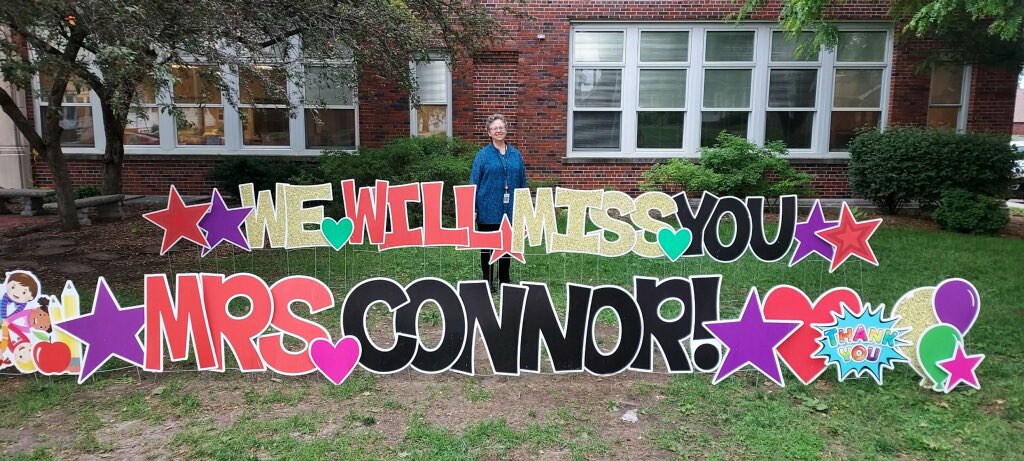 WE WILL MISS YOU
MRS. CONNOR!
THANK
YOU